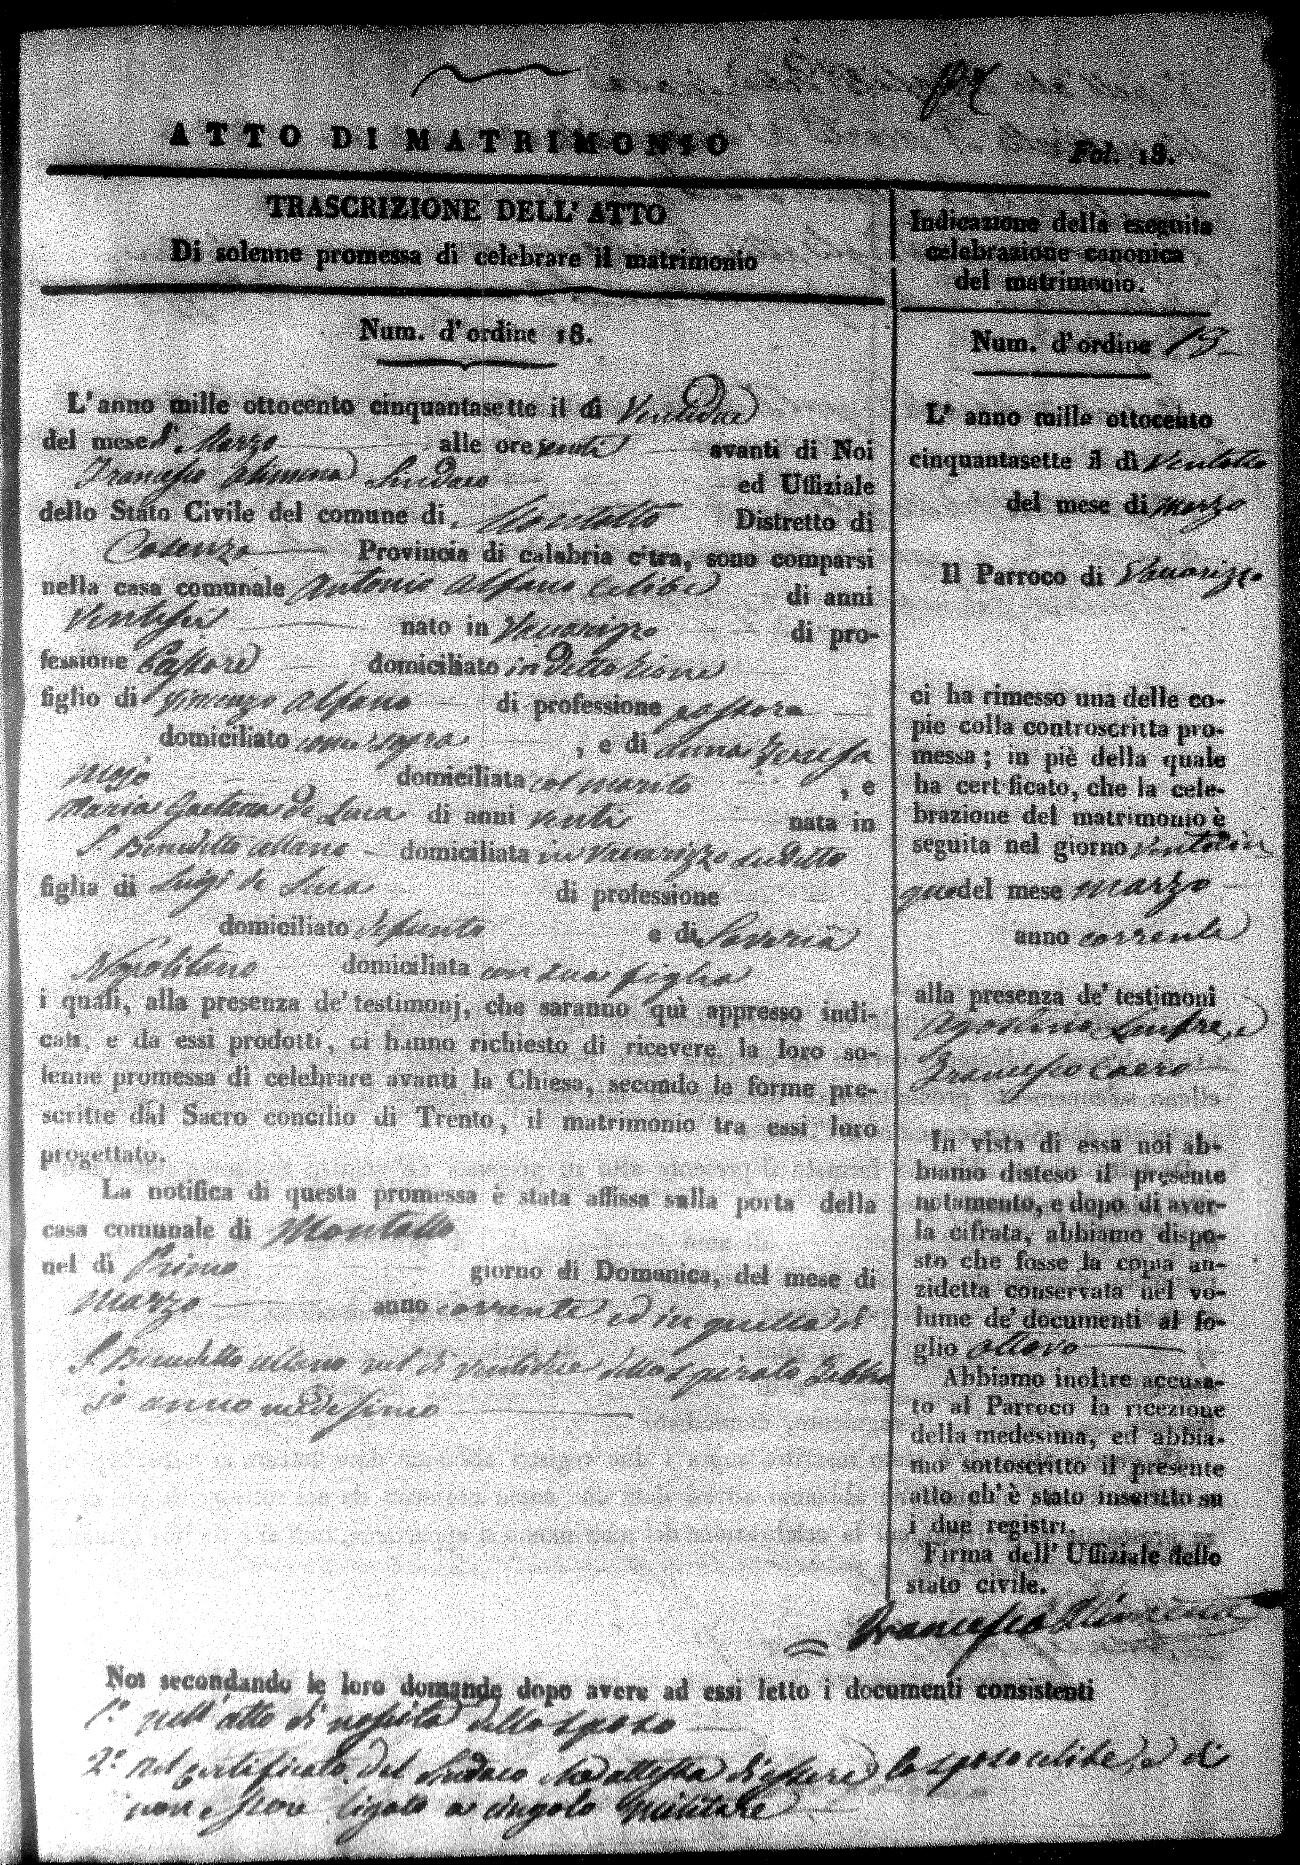 ATTO DI MATRIMONIO
Fol. 18.
TRASCRIZIONE DELL' ATTO
Di solenne promessa di celebrare il matrimonio
Num. d'ordine 18.
L'anno mille ottocento cinquantasette il di Ventidue
del mese di Marzo alle ore venti avanti di Noi
Francesco Sindaco ed Uffiziale
dello Stato Civile del comune di Montalto Distretto di
Cosenza Provincia di calabria citra, sono comparsi
nella casa comunale Antonio Alfano celibe di anni
Ventisei nato in Vaccarizzo di pro-
fessione Pastore domiciliato in detto rione
figlio di Vincenzo Alfano di professione pastore
domiciliato come sopra , e di Anna Teresa
domiciliata col marito , e
Maria Gaetana de Luca di anni venti nata in
S. Benedetto ullano domiciliata in Vaccarizzo suddetto
figlia di Luigi de Luca di professione
domiciliato defunto e di Saveria
Napolitano domiciliata con sua figlia
i quali, alla presenza de' testimonj, che saranno quì appresso indi-
cati, e da essi prodotti, ci hanno richiesto di ricevere la loro so-
lenne promessa di celebrare avanti la Chiesa, secondo le forme pre-
scritte dal Sacro concilio di Trento, il matrimonio tra essi loro
progettato.
La notifica di questa promessa è stata affissa sulla porta della
casa comunale di Montalto
nel di Primo giorno di Domenica, del mese di
Marzo anno corrente, ed in quella di
S. Benedetto ullano nel di ventidue dello spirato Febbra
jo anno medesimo
Indicazione della eseguita
celebrazione canonica
del matrimonio.
Num. d'ordine 13
L' anno mille ottocento
cinquantasette il di ventotto
del mese di marzo
Il Parroco di Vaccarizzo
ci ha rimesso una delle co-
pie colla controscritta pro-
messa; in piè della quale
ha certificato, che la cele-
brazione del matrimonio è
seguita nel giorno ventocin
que del mese marzo
anno corrente
alla presenza de' testimoni
Agostino
Francesco
In vista di essa noi ab-
biamo disteso il presente
notamento, e dopo di aver-
la cifrata, abbiamo dispo-
sto che fosse la copia an-
zidetta conservata nel vo-
lume de' documenti al fo-
glio ottavo
Abbiamo inoltre accusa-
to al Parroco la ricezione
della medesima, ed abbia-
mo sottoscritto il presente
atto ch'è stato inscritto su
i due registri.
Firma dell' Uffiziale dello
stato civile.
Francesco
Noi secondando le loro domande dopo avere ad essi letto i documenti consistenti
1.° nell'atto di nascita dello sposo
2.° nel certificato del Sindaco che attesta di essere lo sposo celibe, e di
non essere ligato a cingolo militare